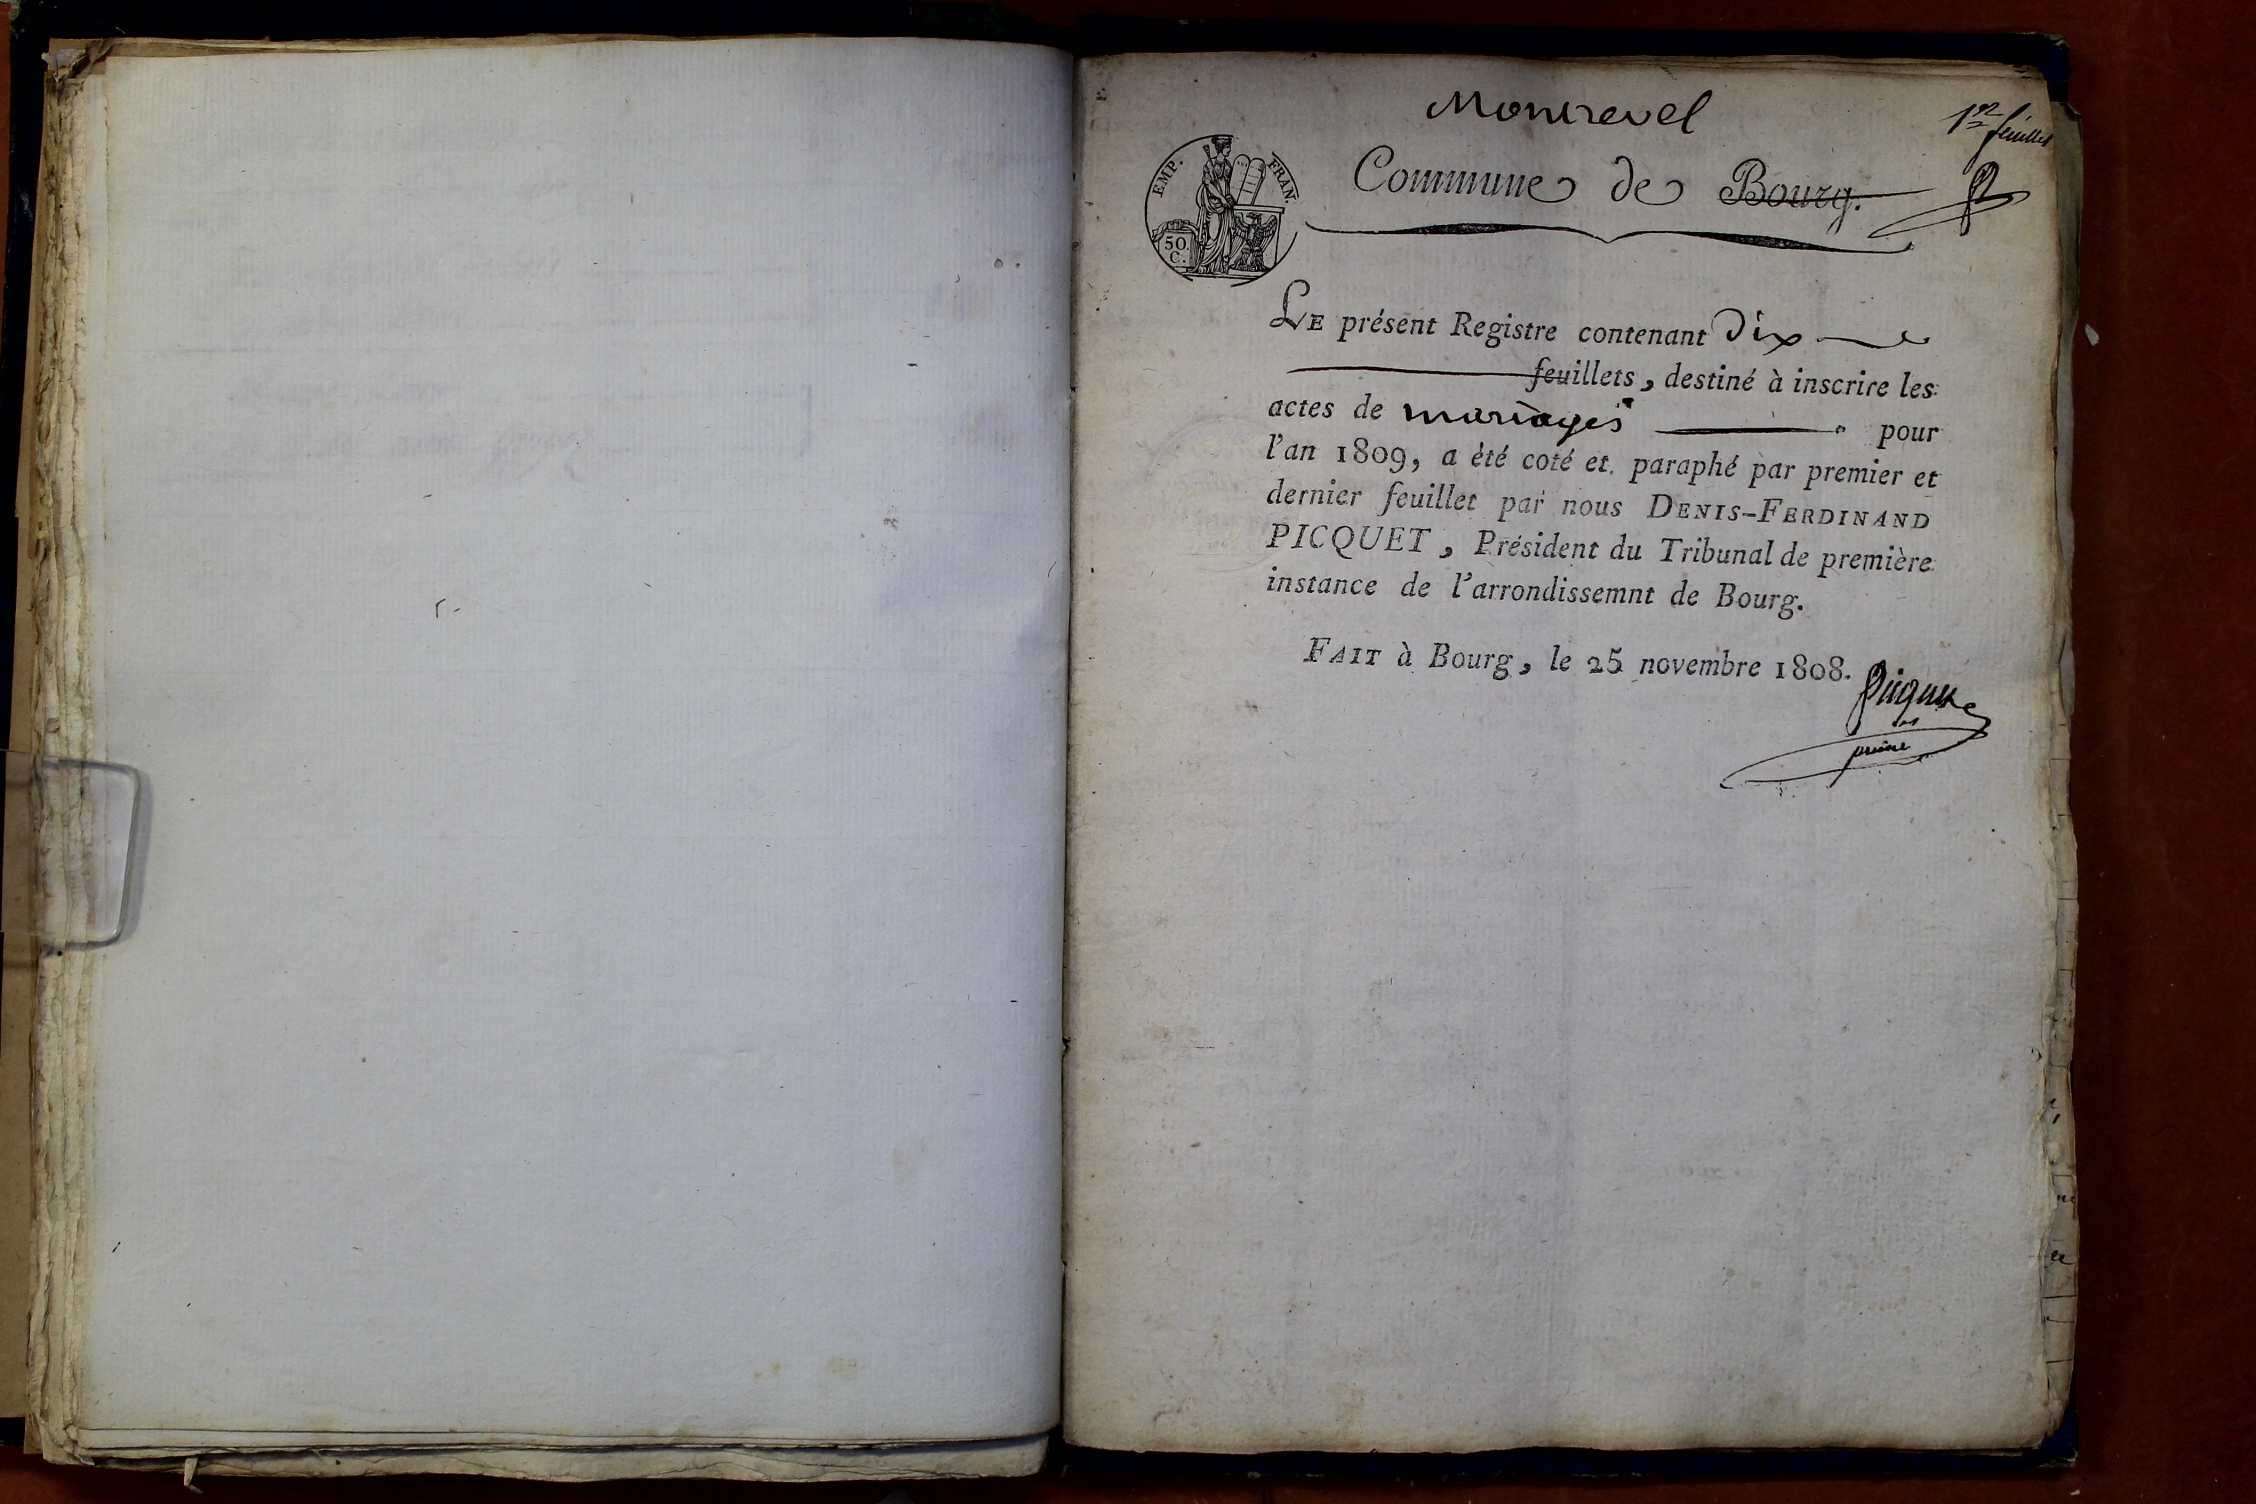 Montrevel
1er feuillet
EMP. FRAN.
50.
C.
Commune de Bourg.
LE présent Registre contenant dix
feuillets, destiné à inscrire les
actes de mariages pour
l'an 1809, a été coté et paraphé par premier et
dernier feuillet par nous DENIS-FERDINAND
PICQUET, Président du Tribunal de première
instance de l'arrondissemnt de Bourg.
FAIT à Bourg, le 25 novembre 1808.
Picquet